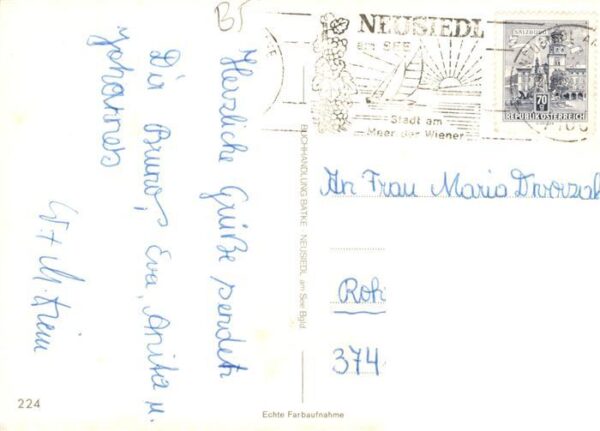 BS
Herzliche Grüße sendet
Dir Bruno, Eva, Anita u.
Johannes
NEUSIEDL
am SEE
Stadt am
Meer der Wiener
SALZBURG
70
REPUBLIK ÖSTERREICH
An Frau Maria
Roh
374
BUCHHANDLUNG BATKE NEUSIEDL am See Bgld
224
Echte Farbaufnahme